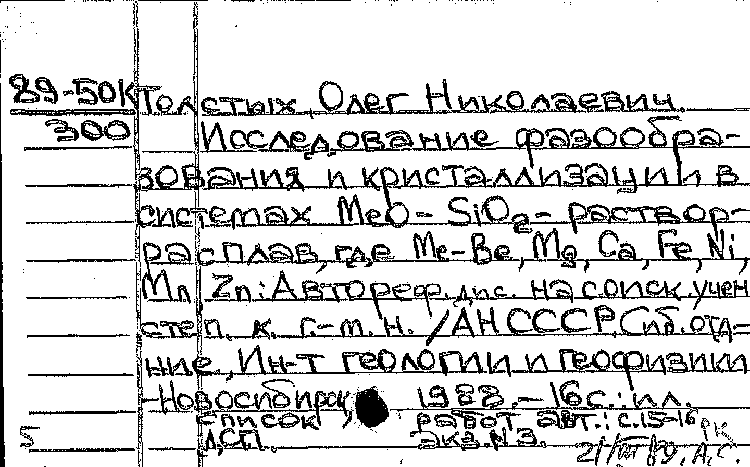 89-50К Толстых, Олег Николаевич.
300 Исследование фазообра-
зования и кристаллизации в
системах MeO – SiO₂ – раствор-
расплав, где Me – Be, Mg, Ca, Fe, Ni,
Mn, Zn: Автореф. дис. на соиск. учен
степ. к. г.-м. н. /АН СССР, Сиб. отд-
ние, Ин-т геологии и геофизики
-Новосибирск, 1988. – 16 с.: ил.
список работ авт.: с. 15-16
5 ДСП. экз. N 3.